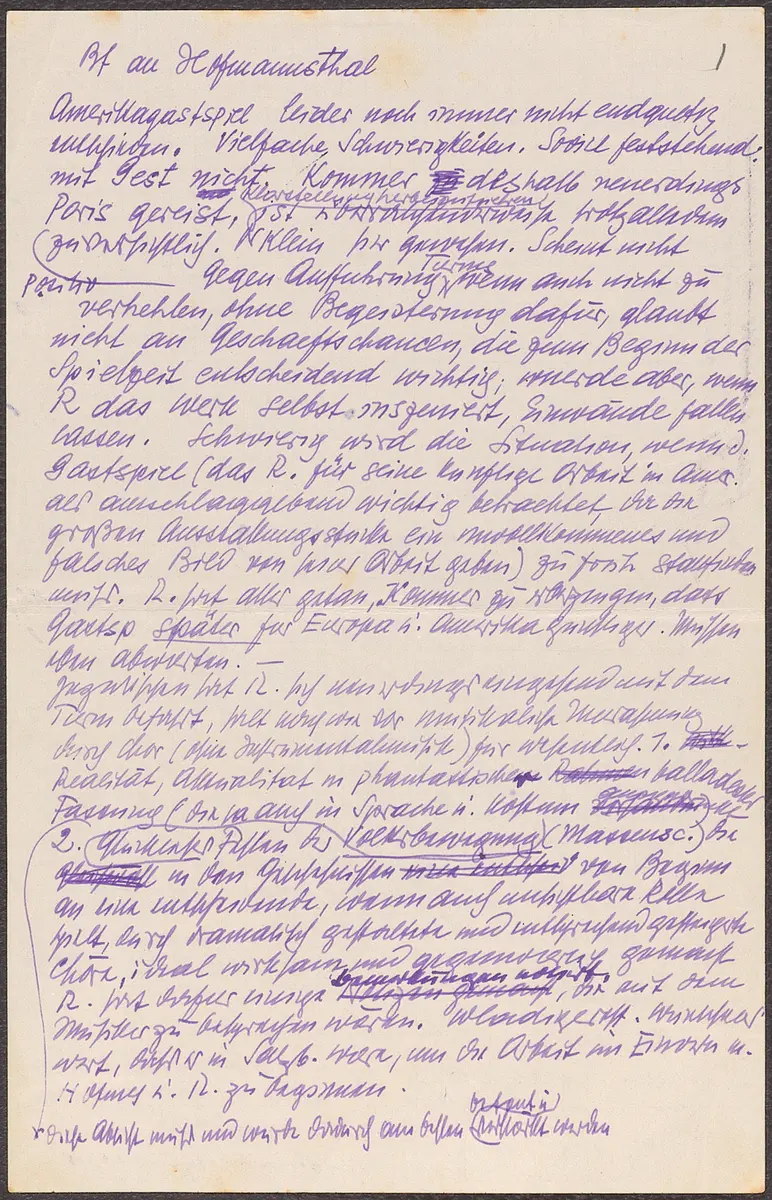 Bf an Hofmannsthal
1
Amerikagastspiel leider noch immer nicht endgueltig
entschieden. Vielfache Schwierigkeiten. Soviel feststehend:
mit Gest nicht. Kommer deshalb neuerdings
Paris gereist, ist trotzalledem
zuversichtlich. Klein hier gewesen. Scheint nicht
positiv gegen Aufführung Turm, wenn auch nicht zu
verhehlen, ohne Begeisterung dafür, glaubt
nicht an Geschaeftschancen, die zum Beginn der
Spielzeit entscheidend wichtig; wuerde aber, wenn
R das Werk selbst inszeniert, Einwände fallen
lassen. Schwierig wird die Situation, wenn d.
Gastspiel (das R. für seine künftige Arbeit in Amer.
als ausschlaggebend wichtig betrachtet, da die
großen Ausstattungsstücke ein unvollkommenes und
falsches Bild von seiner Arbeit geben) zu früh stattfinden
muss. R. hat alles getan, Kommer zu überzeugen, dass
Gastsp später für Europa u. Amerika günstiger. Müssen
eben abwarten. —
Inzwischen hat R. sich neuerdings eingehend mit dem
Turm befasst, haelt nach wie vor musikalische Untermalung
durch Chor (ohne Instrumentalmusik) für wesentlich. 1.
Realität, Aktualität in phantastischer balladesker
Fassung (die ja auch in Sprache u. Kostüm
2. Fehlen der Volksbewegung (Massensc.) die
in den Geschehnissen von Beginn
an eine entscheidende, wenn auch unsichtbare Rolle
spielt, durch dramatisch gestaltete und entsprechend gesteigerte
Chöre, ideal wirksam und gegenwaertig gemacht
R. hat dafuer einige Bemerkungen notiert, die mit dem
Musiker zu besprechen wären. wünschens
wert, dass er in Salzb. waere, um die Arbeit im Einvern m.
Hofms u. R. zu beginnen.
diese Absicht muss und würde dadurch am besten betont u verstärkt werden